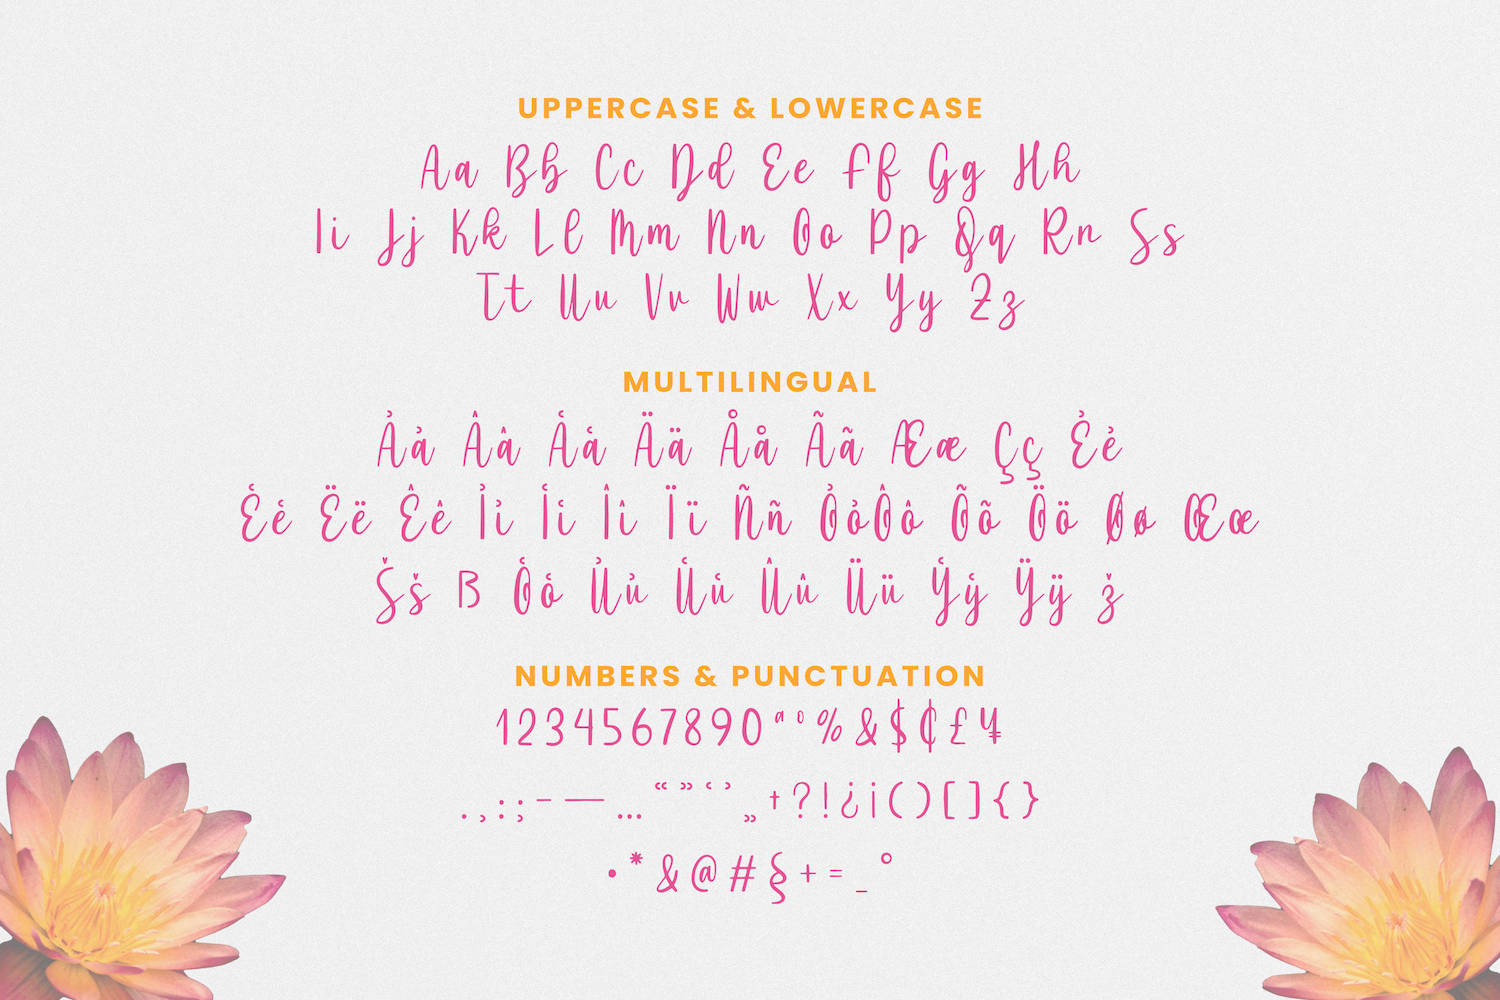 UPPERCASE & LOWERCASE
Aa Bb Cc Dd Ee Ff Gg Hh
Ii Jj Kk Ll Mm Nn Oo Pp Qq Rr Ss
Tt Uu Vv Ww Xx Yy Zz
MULTILINGUAL
Àà Ââ Áá Ää Åå Ãã Ææ Çç Èè
Éé Ëë Êê Ìì Íí Îî Ïï Ññ ÒòÔô Õõ Öö Øø Œœ
Šš ß Óó Ùù Úú Ûû Üü Ýý Ÿÿ ž
NUMBERS & PUNCTUATION
1234567890ªº%&$¢£¥
.,:;-—…“”‘’„†?!¿¡()[]{}
•*&@#§+=_°